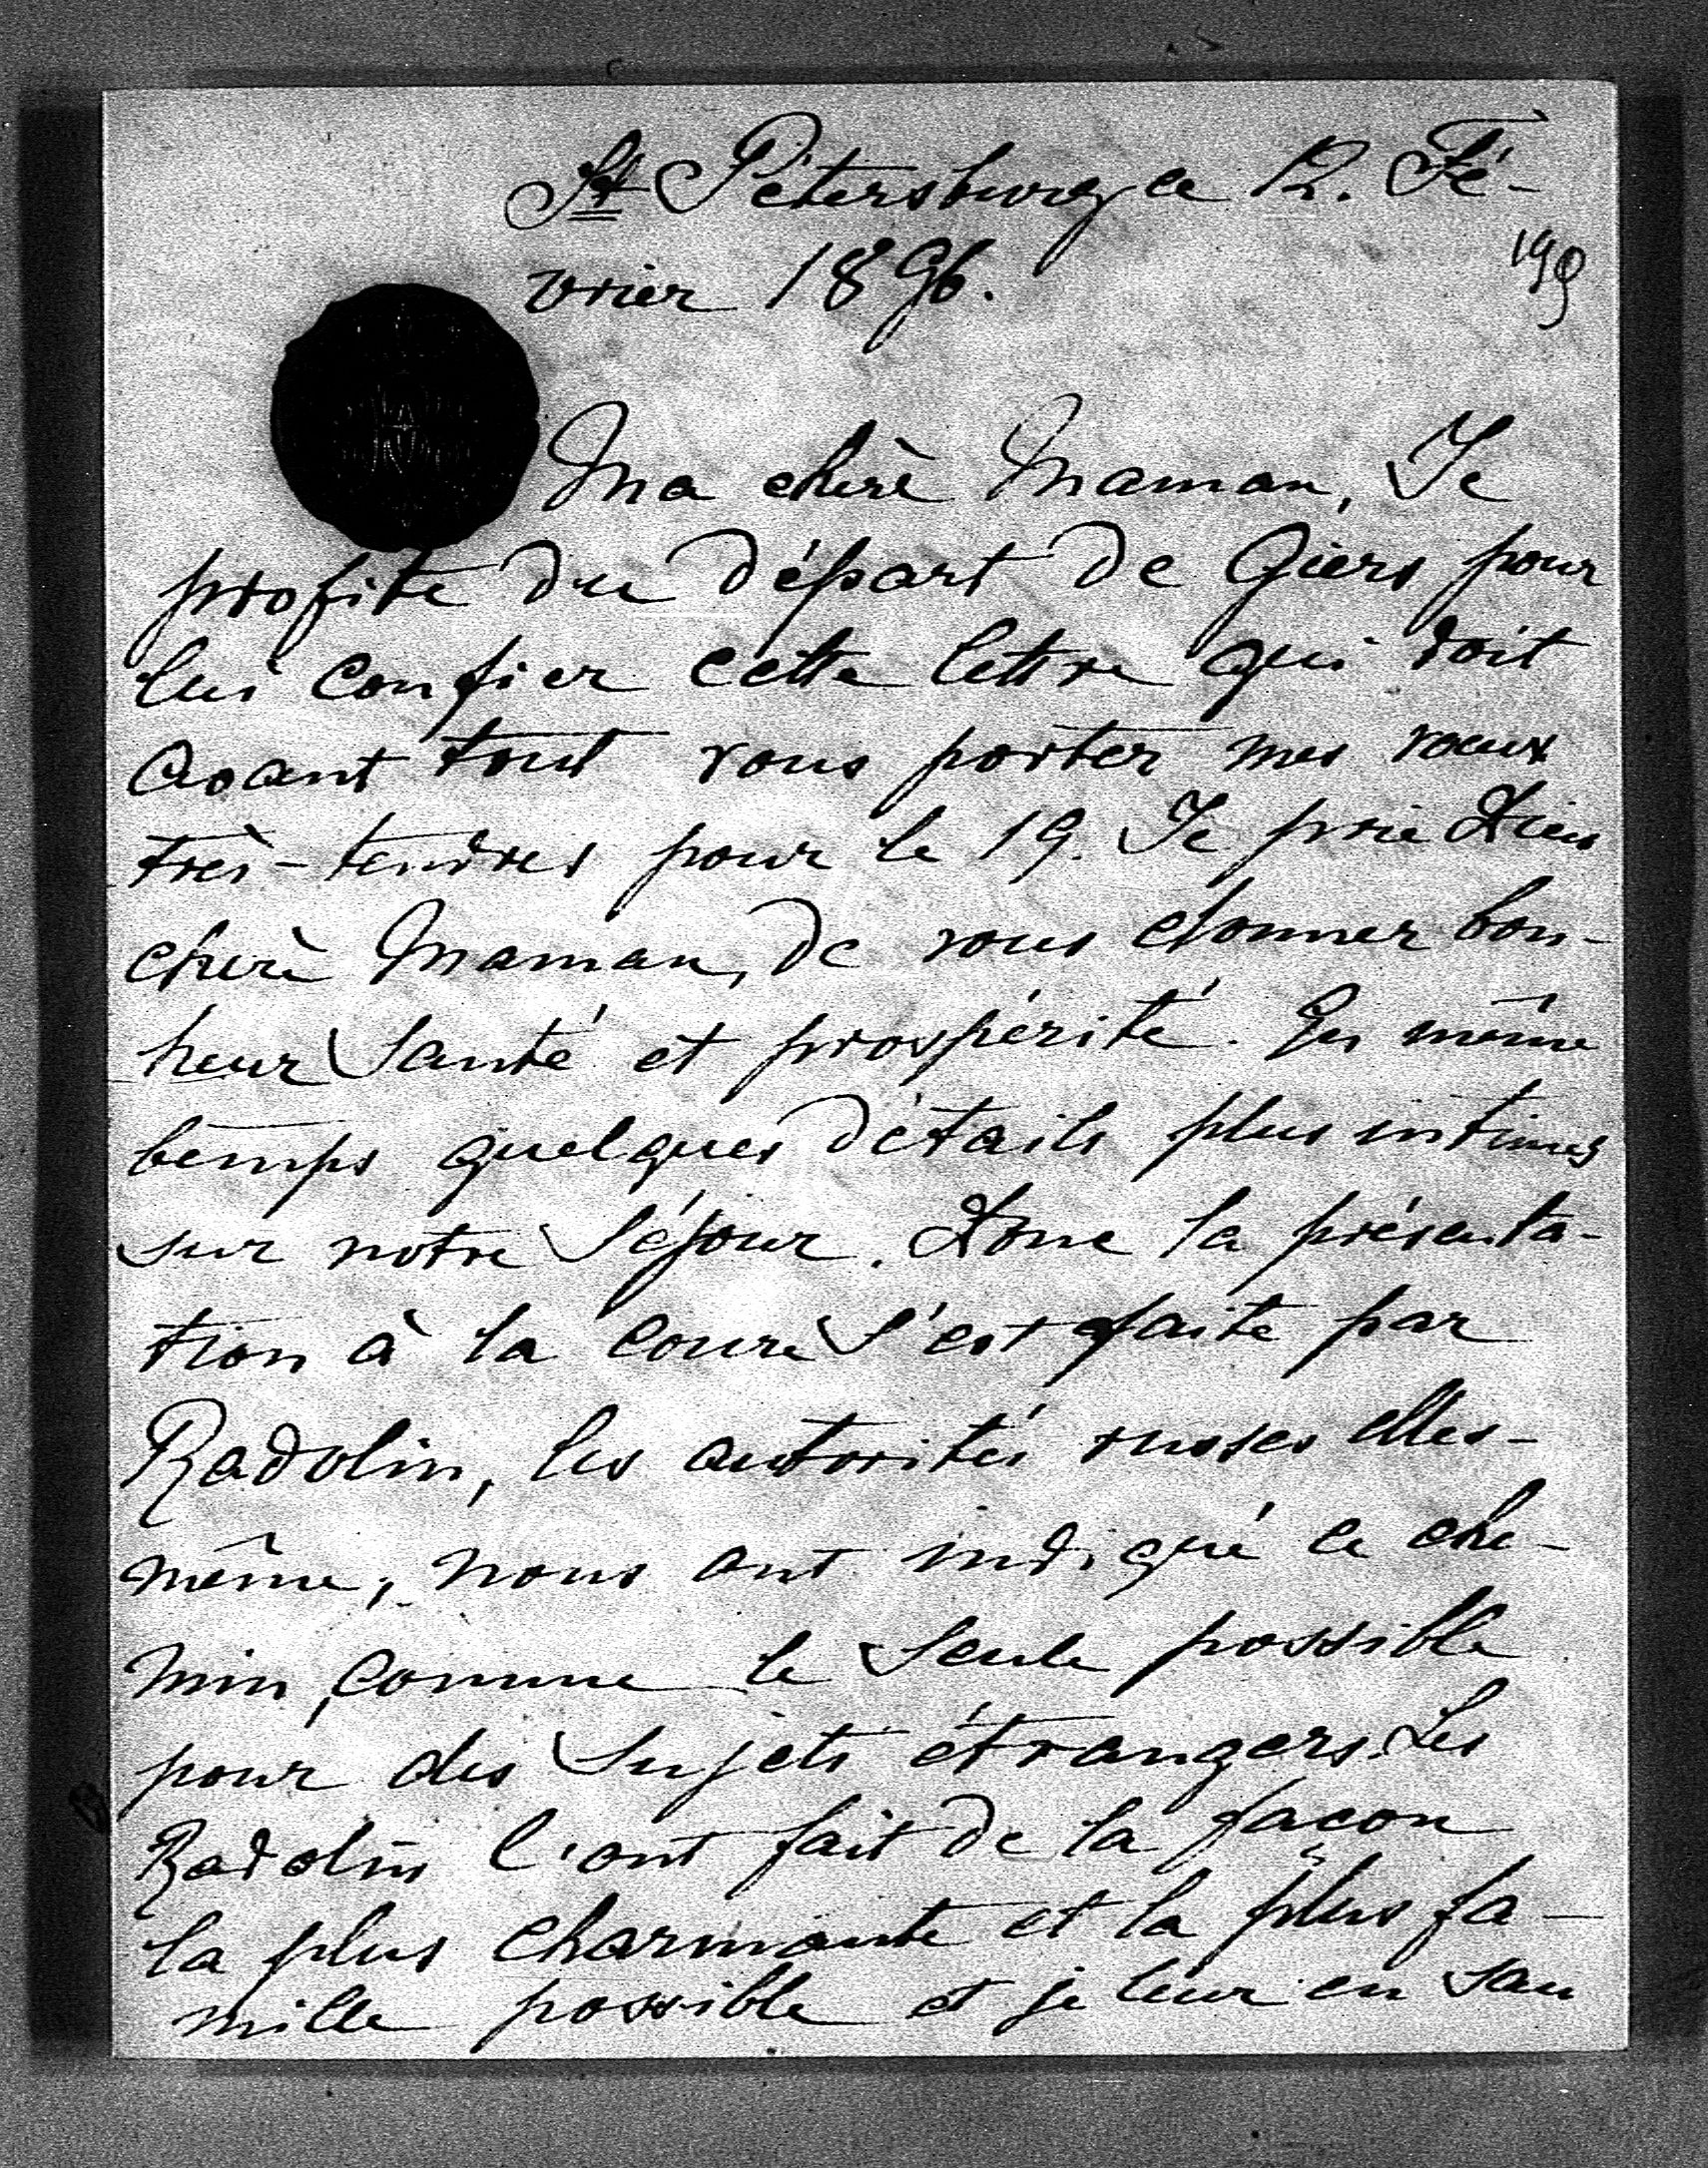 St Pétersburg ce 12. Fé-
199
vrier 1896.
Ma chère Maman, Je
profite du départ de Giers pour
lui confier cette lettre qui doit
avant tout vous porter mes vœux
très-tendres pour le 19. Je prie Dieu
chère Maman, de vous donner bon-
heur santé et prospérité. En même
temps quelques détails plus intimes
sur notre séjour. Donc la présenta-
tion à la cour s'est faite par
Radolin, les autorités russes elles-
même, nous ont indiqué ce che-
min, comme le seule possible
pour des sujets étrangers. Les
Radolin l'ont fait de la façon
la plus charmante et la plus fa-
mille possible et je leur en sau